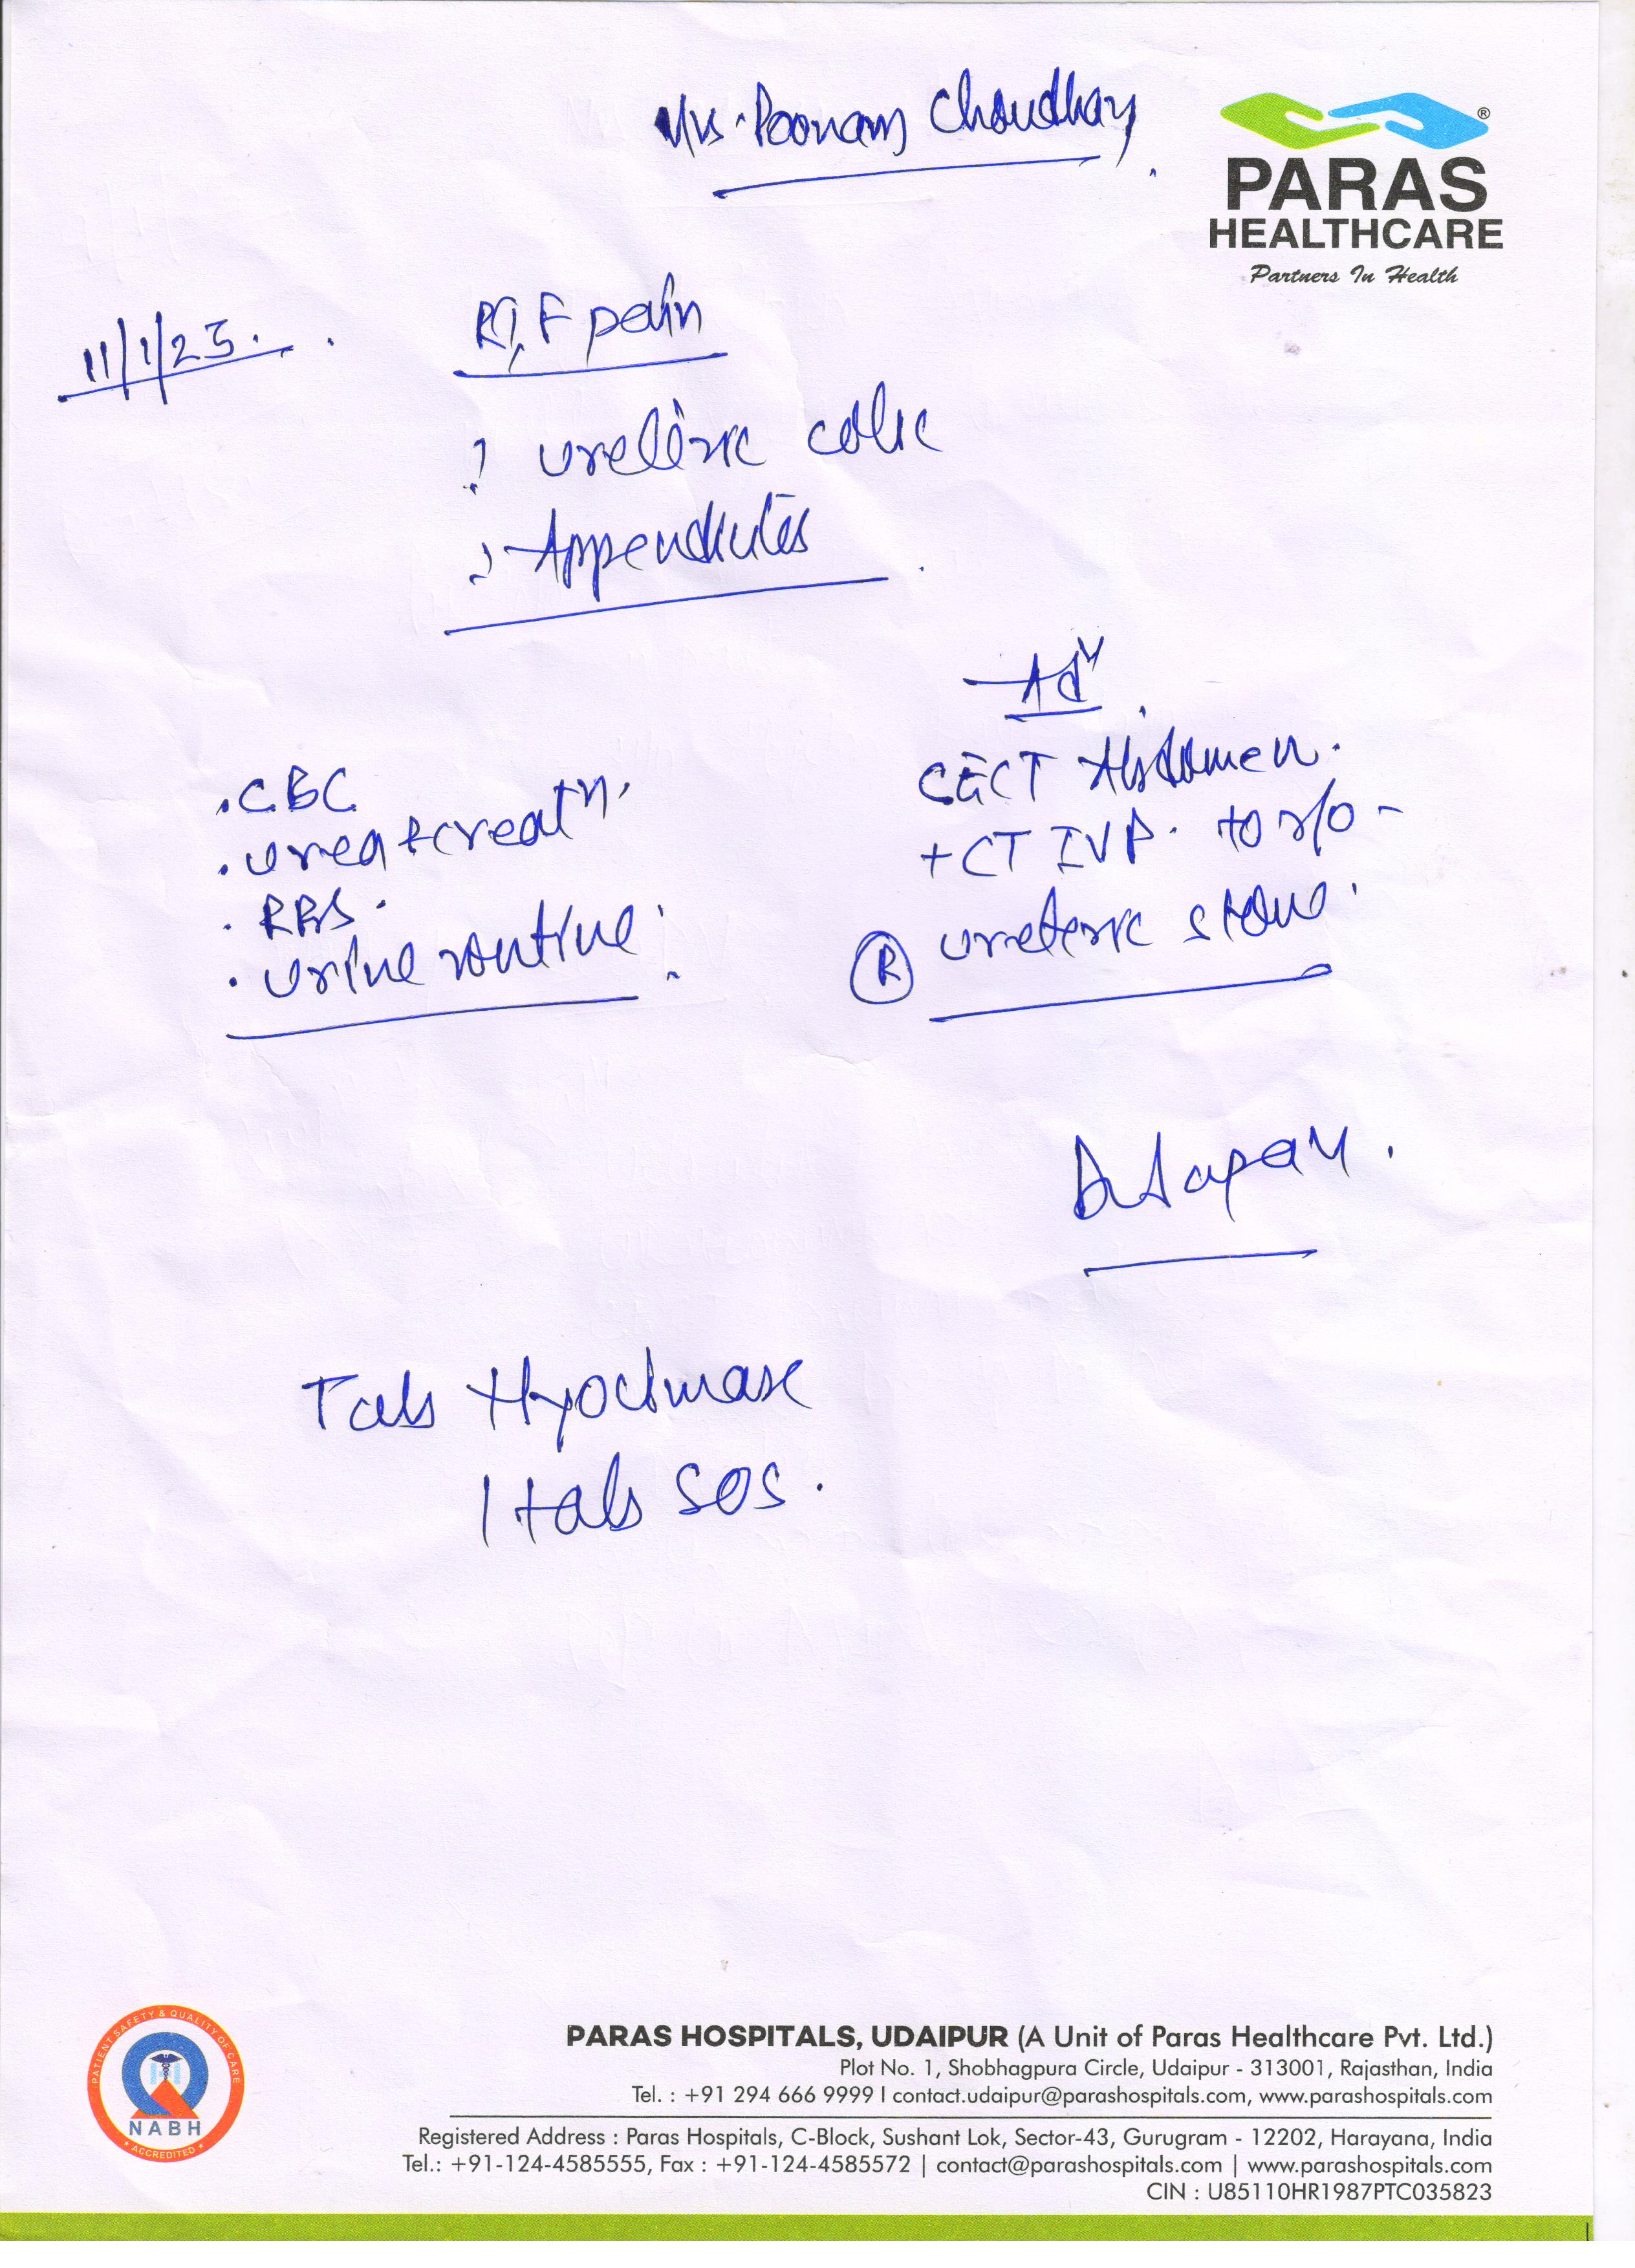 Mrs. Poonam Choudhary
®
PARAS
HEALTHCARE
Partners In Health
11/1/25.
RIF pain
? ureteric colic
? Appendicitis
Adv
. CBC
. urea + creatn.
. RBS.
. urine routine.
CECT Abdomen.
+ CT IVP. to r/o -
(R) ureteric stone.
Tab
1 tab sos.
PATIENT SAFETY & QUALITY OF CARE
NABH
ACCREDITED
PARAS HOSPITALS, UDAIPUR (A Unit of Paras Healthcare Pvt. Ltd.)
Plot No. 1, Shobhagpura Circle, Udaipur - 313001, Rajasthan, India
Tel. : +91 294 666 9999 I contact.udaipur@parashospitals.com, www.parashospitals.com
Registered Address : Paras Hospitals, C-Block, Sushant Lok, Sector-43, Gurugram - 12202, Harayana, India
Tel.: +91-124-4585555, Fax : +91-124-4585572 | contact@parashospitals.com | www.parashospitals.com
CIN : U85110HR1987PTC035823